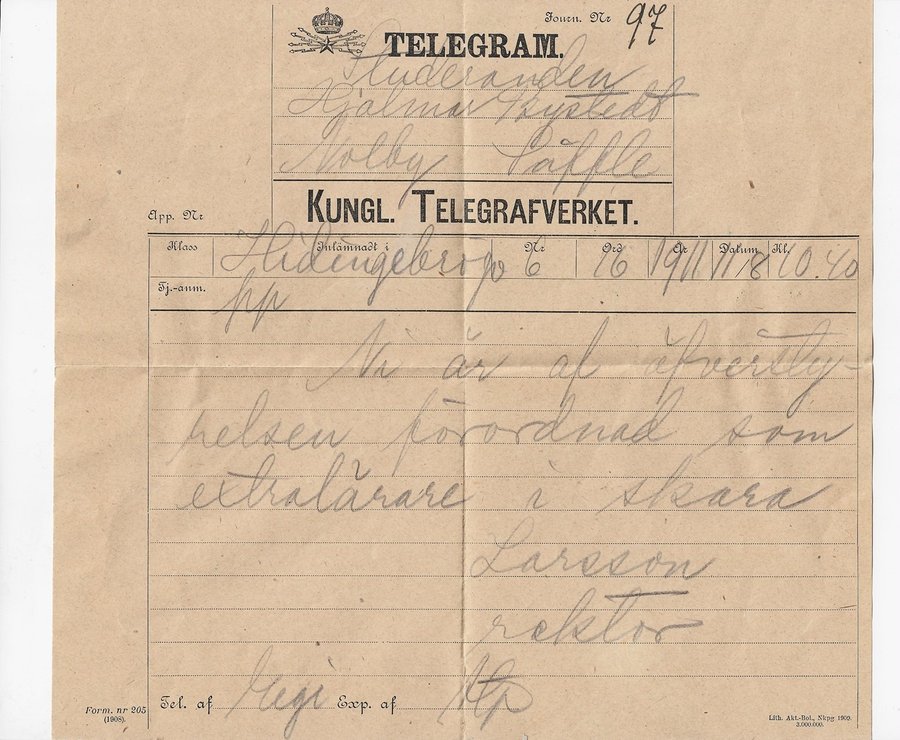 Journ. Nr 97
TELEGRAM.
Studeranden
Hjalmar Bystedt
Nolby Säffle
KUNGL. TELEGRAFVERKET.
App. Nr
Klass Inlämnadt i Nr Ord År Datum Kl.
Hidingebro 6 16 1911 11/8 10.40
Tj.-anm.
pp
Ni är af öfversty-
relsen förordnad som
extralärare i skara
Larsson
rektor
Tel. af Exp. af
Form. nr 205
(1908).
Lith. Akt.-Bol., Nkpg 1909.
3.000.000.